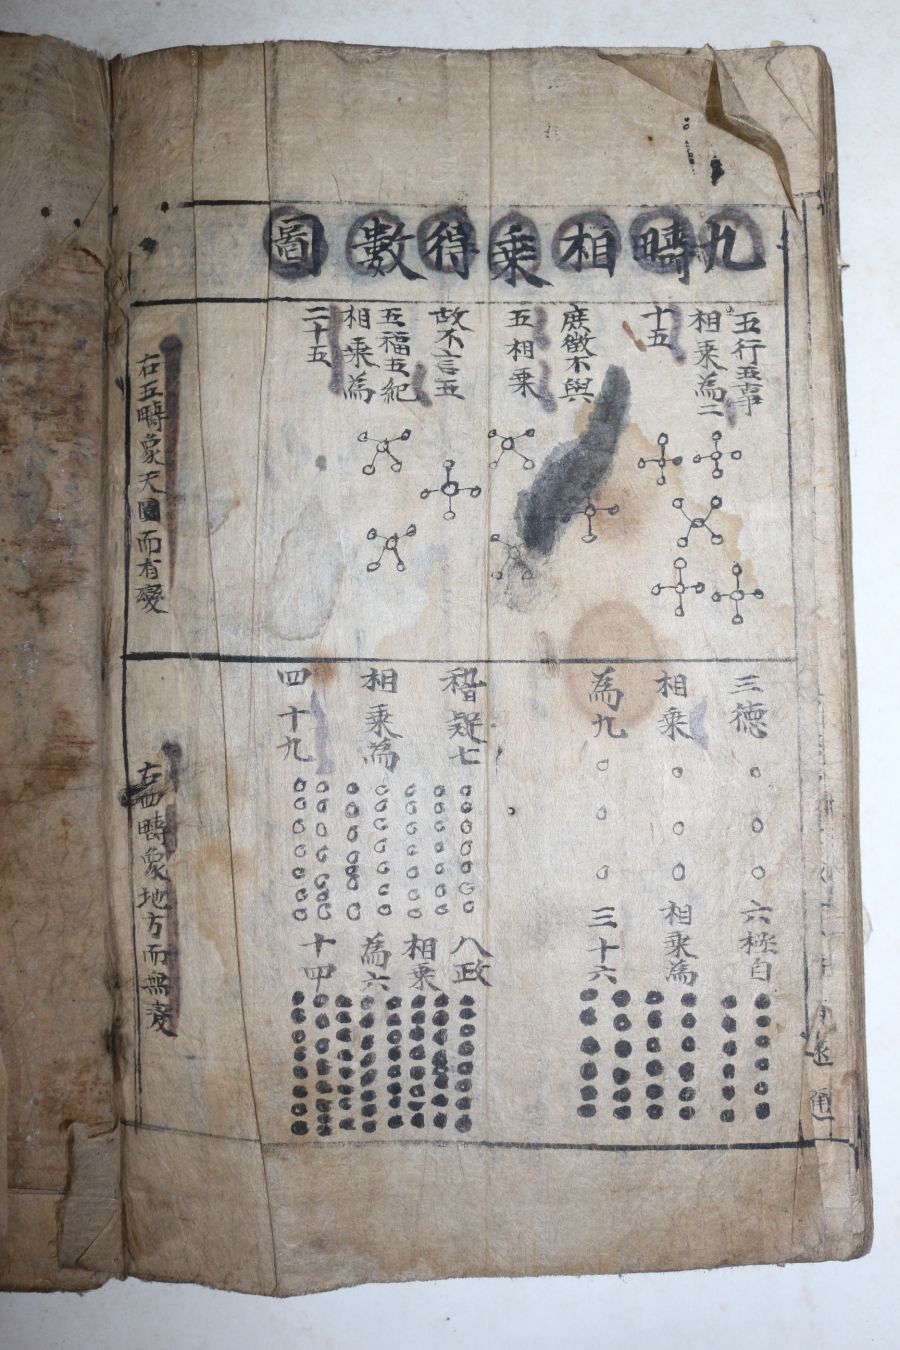 九疇相乘得數圖
五行五事
相乘為二
十五
庶徵不與
五相乘
故不言五
五福五紀
相乘為
二十五
右五疇象天圓而有變
三德
相乘
為九
六極自
相乘為
三十六
稽疑七
相乘為
四十九
八政
相乘
為六
十四
右四疇象地方而無變